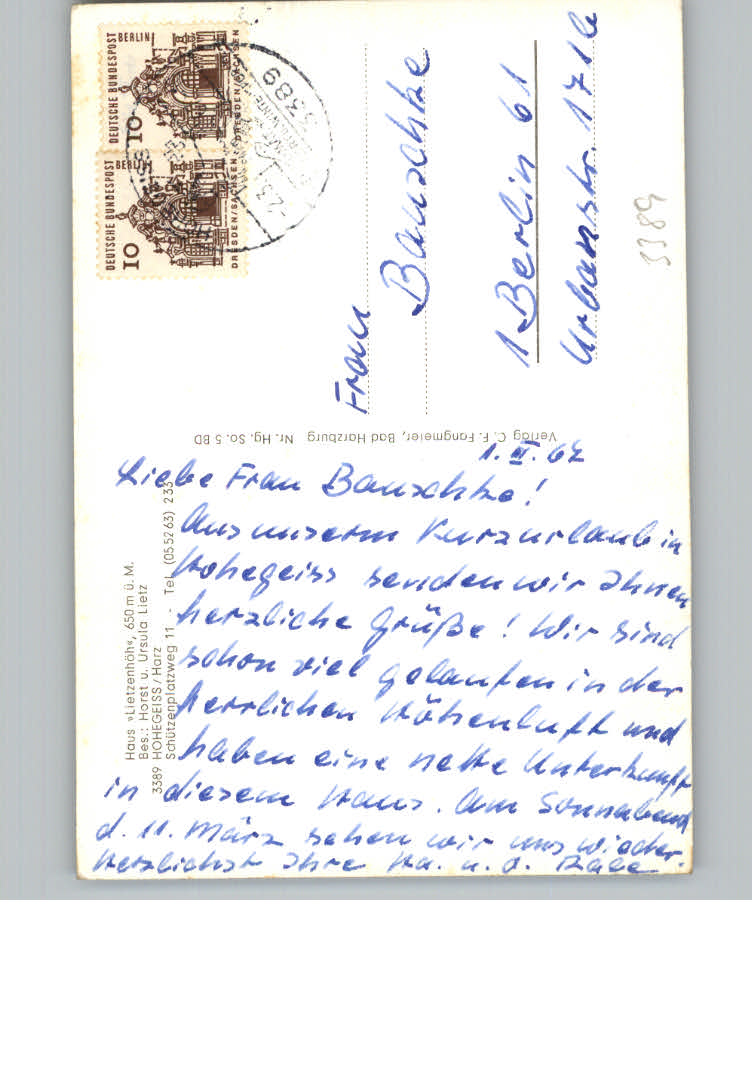 1. III. 67
Liebe Frau Bauschke!
Aus unserm Kurzurlaub in
Hohegeiss senden wir Ihnen
herzliche Grüße! Wir sind
schon viel gelaufen in der
herrlichen Höhenluft und
haben eine nette Unterkunft
in diesem Haus. Am Sonnabend
d. 11. März sehen wir uns wieder.
Herzlichst Ihre Ha. u. J.
Haus »Lietzenhöh«, 650 m ü. M.
Bes.: Horst u. Ursula Lietz
3389 HOHEGEISS / Harz
Schützenplatzweg 11 - Tel. (055263) 233
Verlag C. F. Fangmeier, Bad Harzburg Nr. Hg. So. 5 BD
Frau
Bauschke
1 Berlin 61
Urbanstr. 171b
3389
DEUTSCHE BUNDESPOST BERLIN
10
DRESDEN/SACHSEN
DEUTSCHE BUNDESPOST BERLIN
10
DRESDEN/SACHSEN
3389
-2.3.